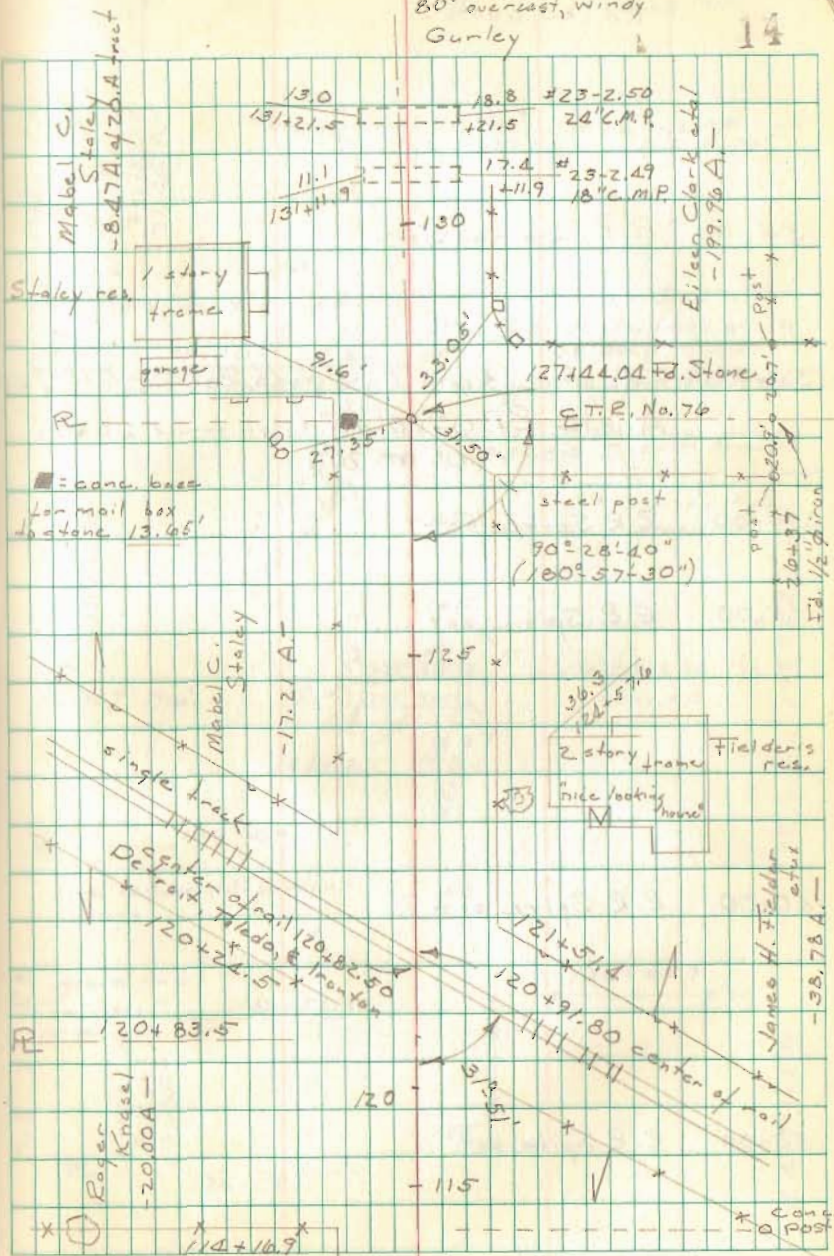 80° overcast, windy
Gurley
Mabel C.
Staley
-8.47A. of 20.A tract
13.0
131+21.5
18.8
+21.5
#23-2.50
24"C.M.P.
11.1
131+11.9
17.4
+11.9
#23-2.49
18"C.M.P.
130
Eileen Clark etal
-199.96 A.-
Staley res.
1 story
frame
garage
91.6'
33.05'
127+44.04 Fd. Stone
℄ T.R. No. 76
27.35'
31.50'
= conc. base
for mail box
to stone 13.65'
steel post
90°-28'-40"
(180°-57'-30")
post
20.7'
Post
26+37
Fd. 1/2" ø iron
Mabel C.
Staley
-17.21 A.-
125
36.3
124+57.6
2 story frame
"nice looking
house"
Fielder's
res.
single track
Center of rail 120+82.50
Detroit, Toledo, & Ironton
120+24.5
121+51.4
120+91.80 center of rail
James H. Fielder
etux
-38.78 A.-
120+83.5
120
Roger
Knasel
-20.00A-
115
114+16.9
conc
post